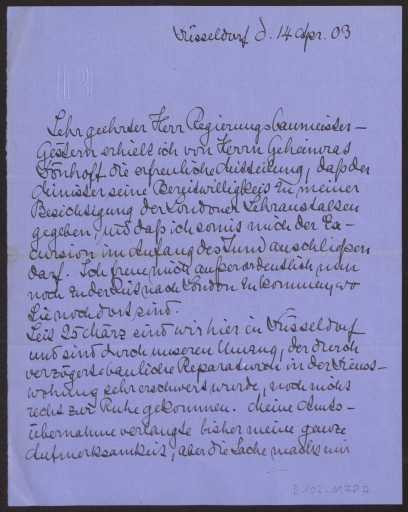 Düsseldorf d. 14 Apr. 03
Sehr geehrter Herr Regierungsbaumeister –
Gestern erhielt ich von Herrn Geheimrat
Dönhoff die erfreuliche Mitteilung, daß der
Minister seine Bereitwilligkeit zu meiner
Besichtigung der Londoner Lehranstalten
gegeben, und daß ich somit mich der Ex-
cursion im Anfang des Juni anschließen
darf. Ich freue mich außerordentlich nun
noch zu der Zeit nach London zu kommen, wo
Sie noch dort sind.
Seit 25 März sind wir hier in Düsseldorf
und sind durch unseren Umzug, der durch
verzögerte bauliche Reparaturen in der Dienst-
wohnung sehr erschwert wurde, noch nicht
recht zur Ruhe gekommen. Meine Amts-
übernahme verlangte bisher meine ganze
Aufmerksamkeit, aber die Sache macht mir